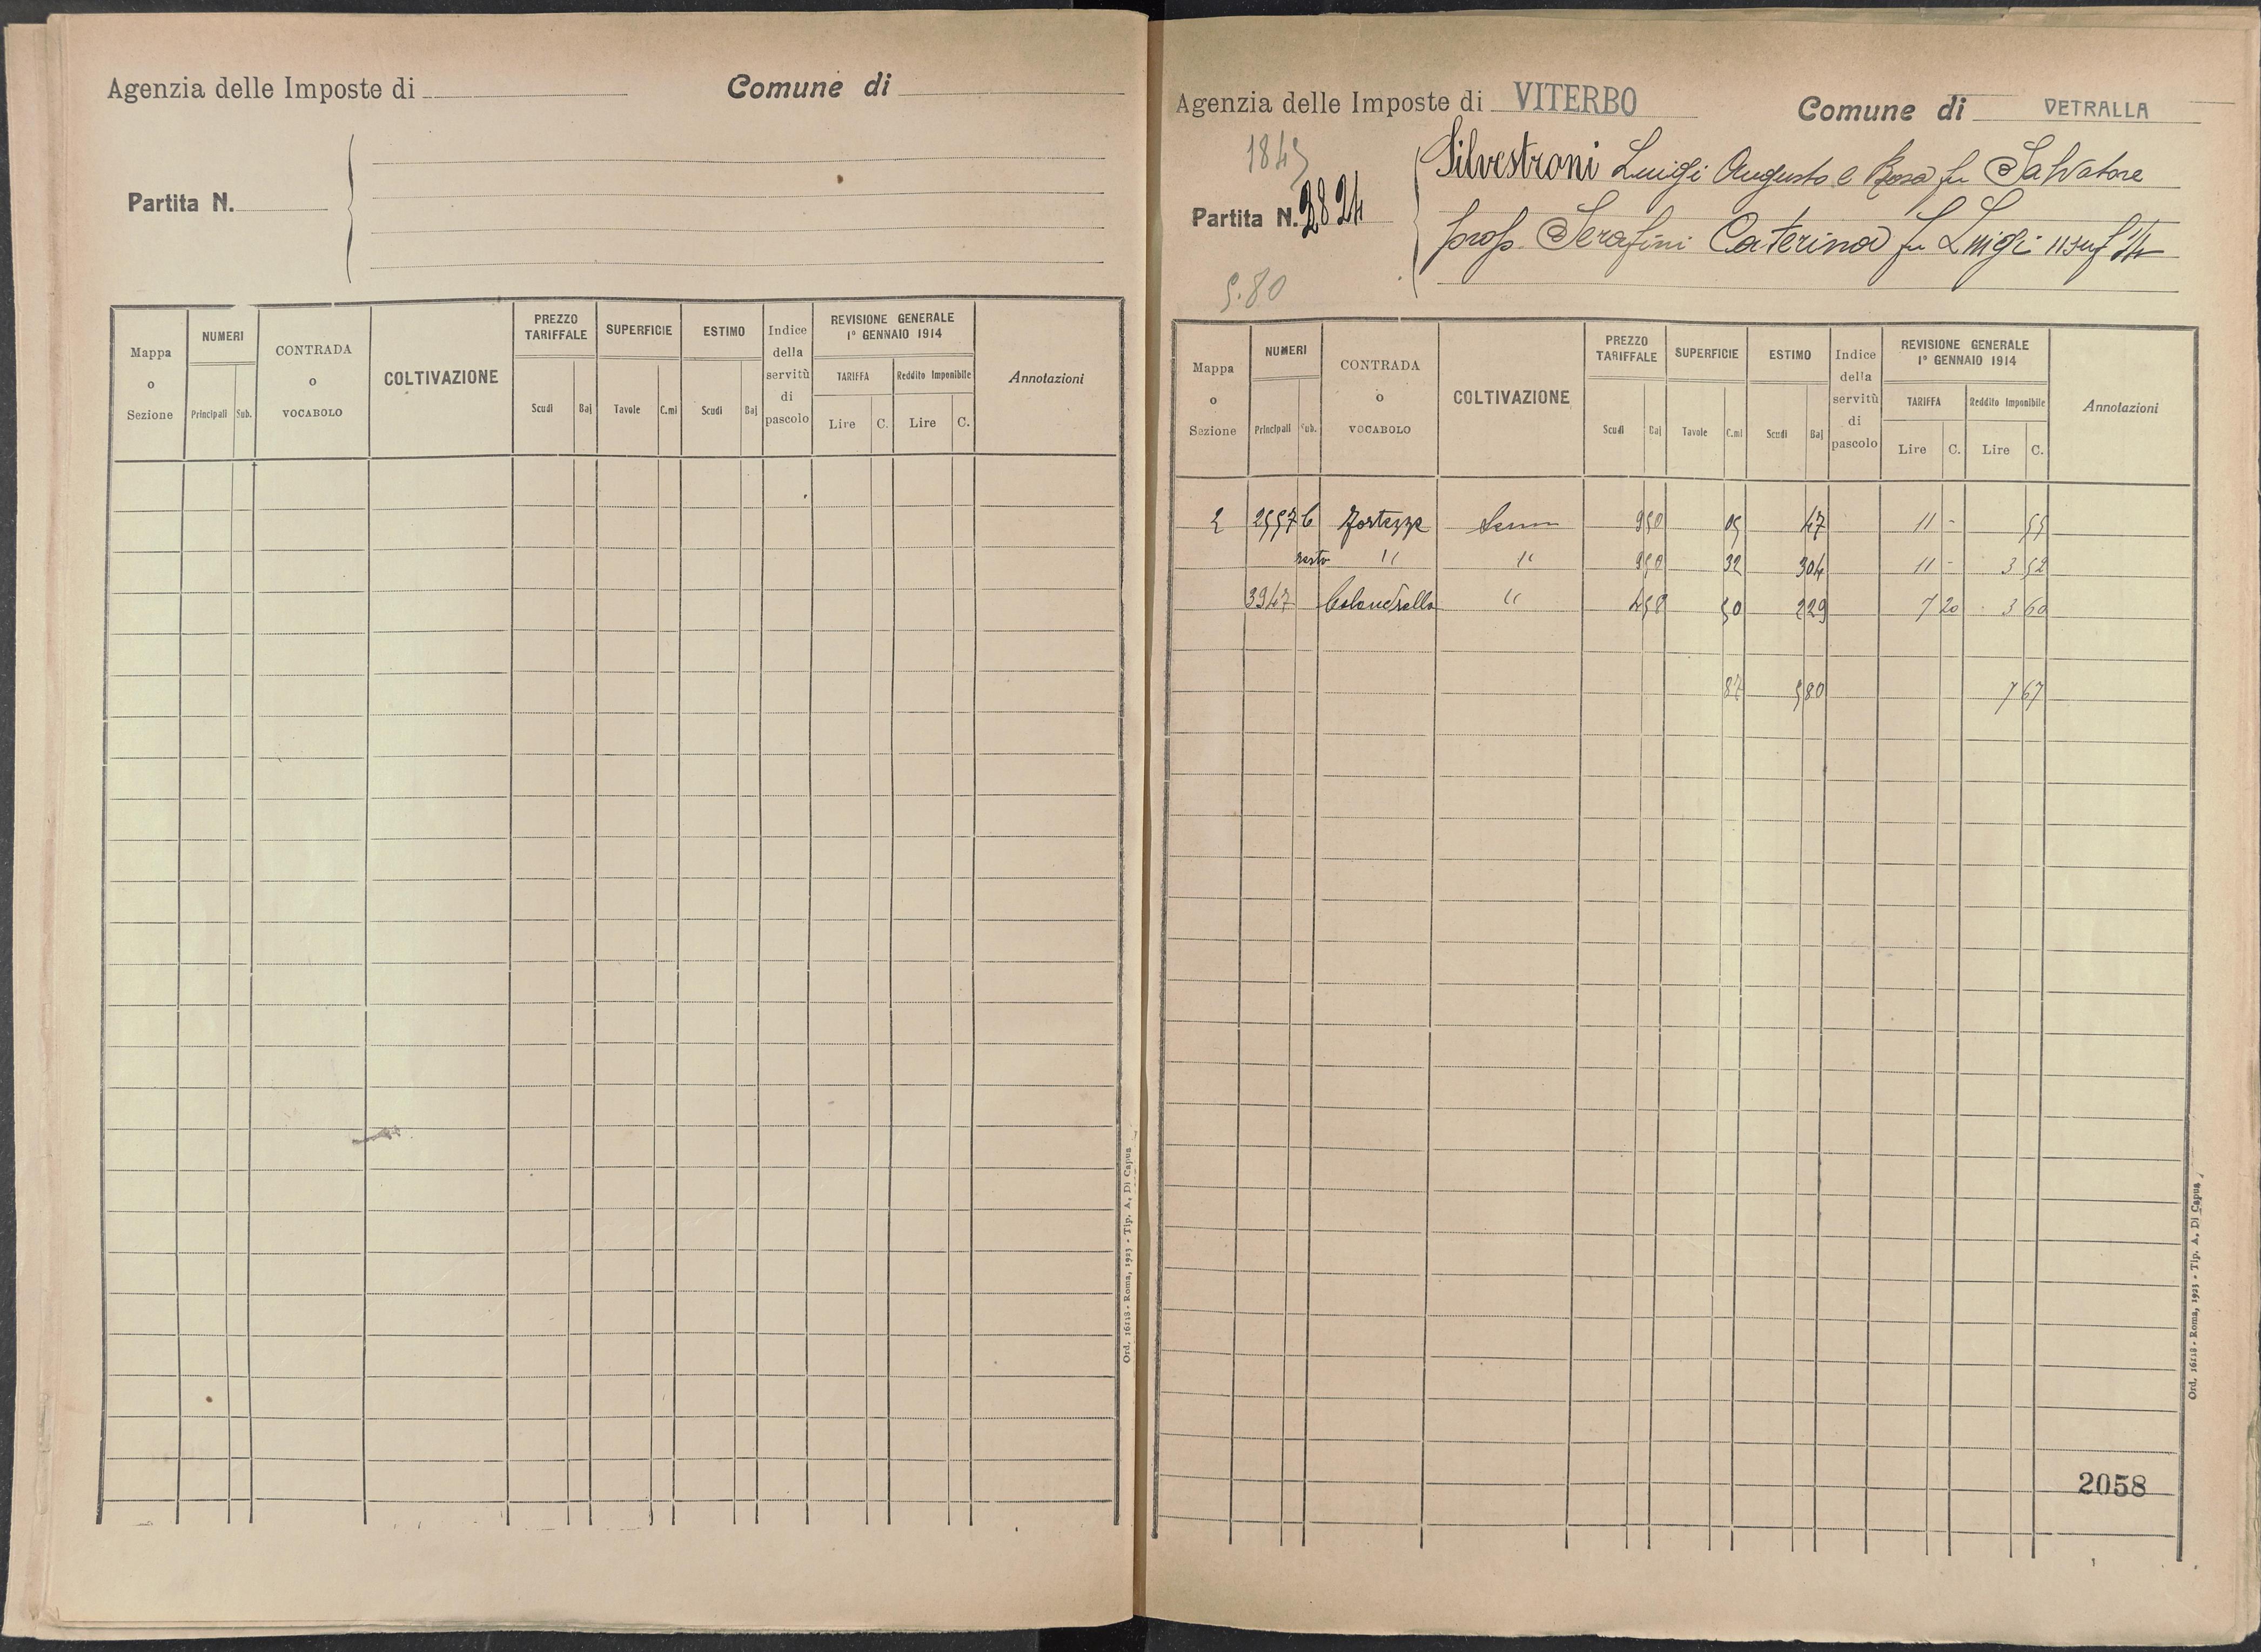 Agenzia delle Imposte di Comune di
Partita N.
Mappa o Sezione NUMERI Principali Sub. CONTRADA o VOCABOLO COLTIVAZIONE PREZZO TARIFFALE Scudi Baj SUPERFICIE Tavole C.mi ESTIMO Scudi Baj Indice della servitù di pascolo REVISIONE GENERALE 1° GENNAIO 1914 TARIFFA Lire C. Reddito Imponibile Lire C. Annotazioni
Ord. 16118 - Roma, 1923 - Tip. A. Di Capua
Agenzia delle Imposte di VITERBO Comune di VETRALLA
1845
Partita N. 2824
Silvestroni Luigi Augusto e Rosa fu Salvatore
prop. Serafini Caterina fu Luigi usuf
5.80
Mappa o Sezione NUMERI Principali Sub. CONTRADA o VOCABOLO COLTIVAZIONE PREZZO TARIFFALE Scudi Baj SUPERFICIE Tavole C.mi ESTIMO Scudi Baj Indice della servitù di pascolo REVISIONE GENERALE 1° GENNAIO 1914 TARIFFA Lire C. Reddito Imponibile Lire C. Annotazioni
2 2557 6 Fortezze Sem 9 50 05 47 11 - 55
resto " " 9 50 32 3 04 11 - 3 52
3947 " 4 58 50 2 29 7 20 3 60
87 5 80 7 67
2058
Ord. 16118 - Roma, 1923 - Tip. A. Di Capua